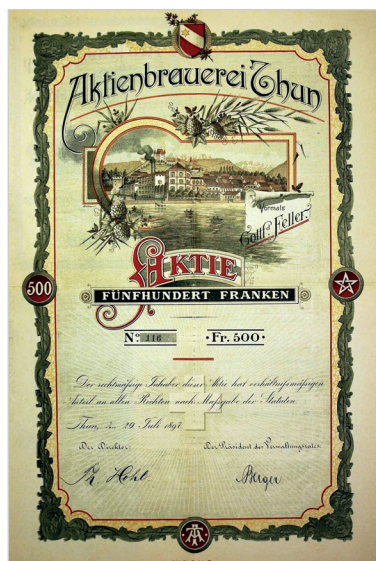 Aktienbrauerei Thun
Vormals
Gottf. Feller.
AKTIE
500
FÜNFHUNDERT FRANKEN
No. 116
Fr. 500
Der rechtmäßige Inhaber dieser Aktie hat verhältnißmäßigen
Anteil an allen Rechten nach Maßgabe der Statuten.
Thun, den 29. Juli 1897
Der Direktor:
Der Präsident des Verwaltungsrates:
Hohl
Berger